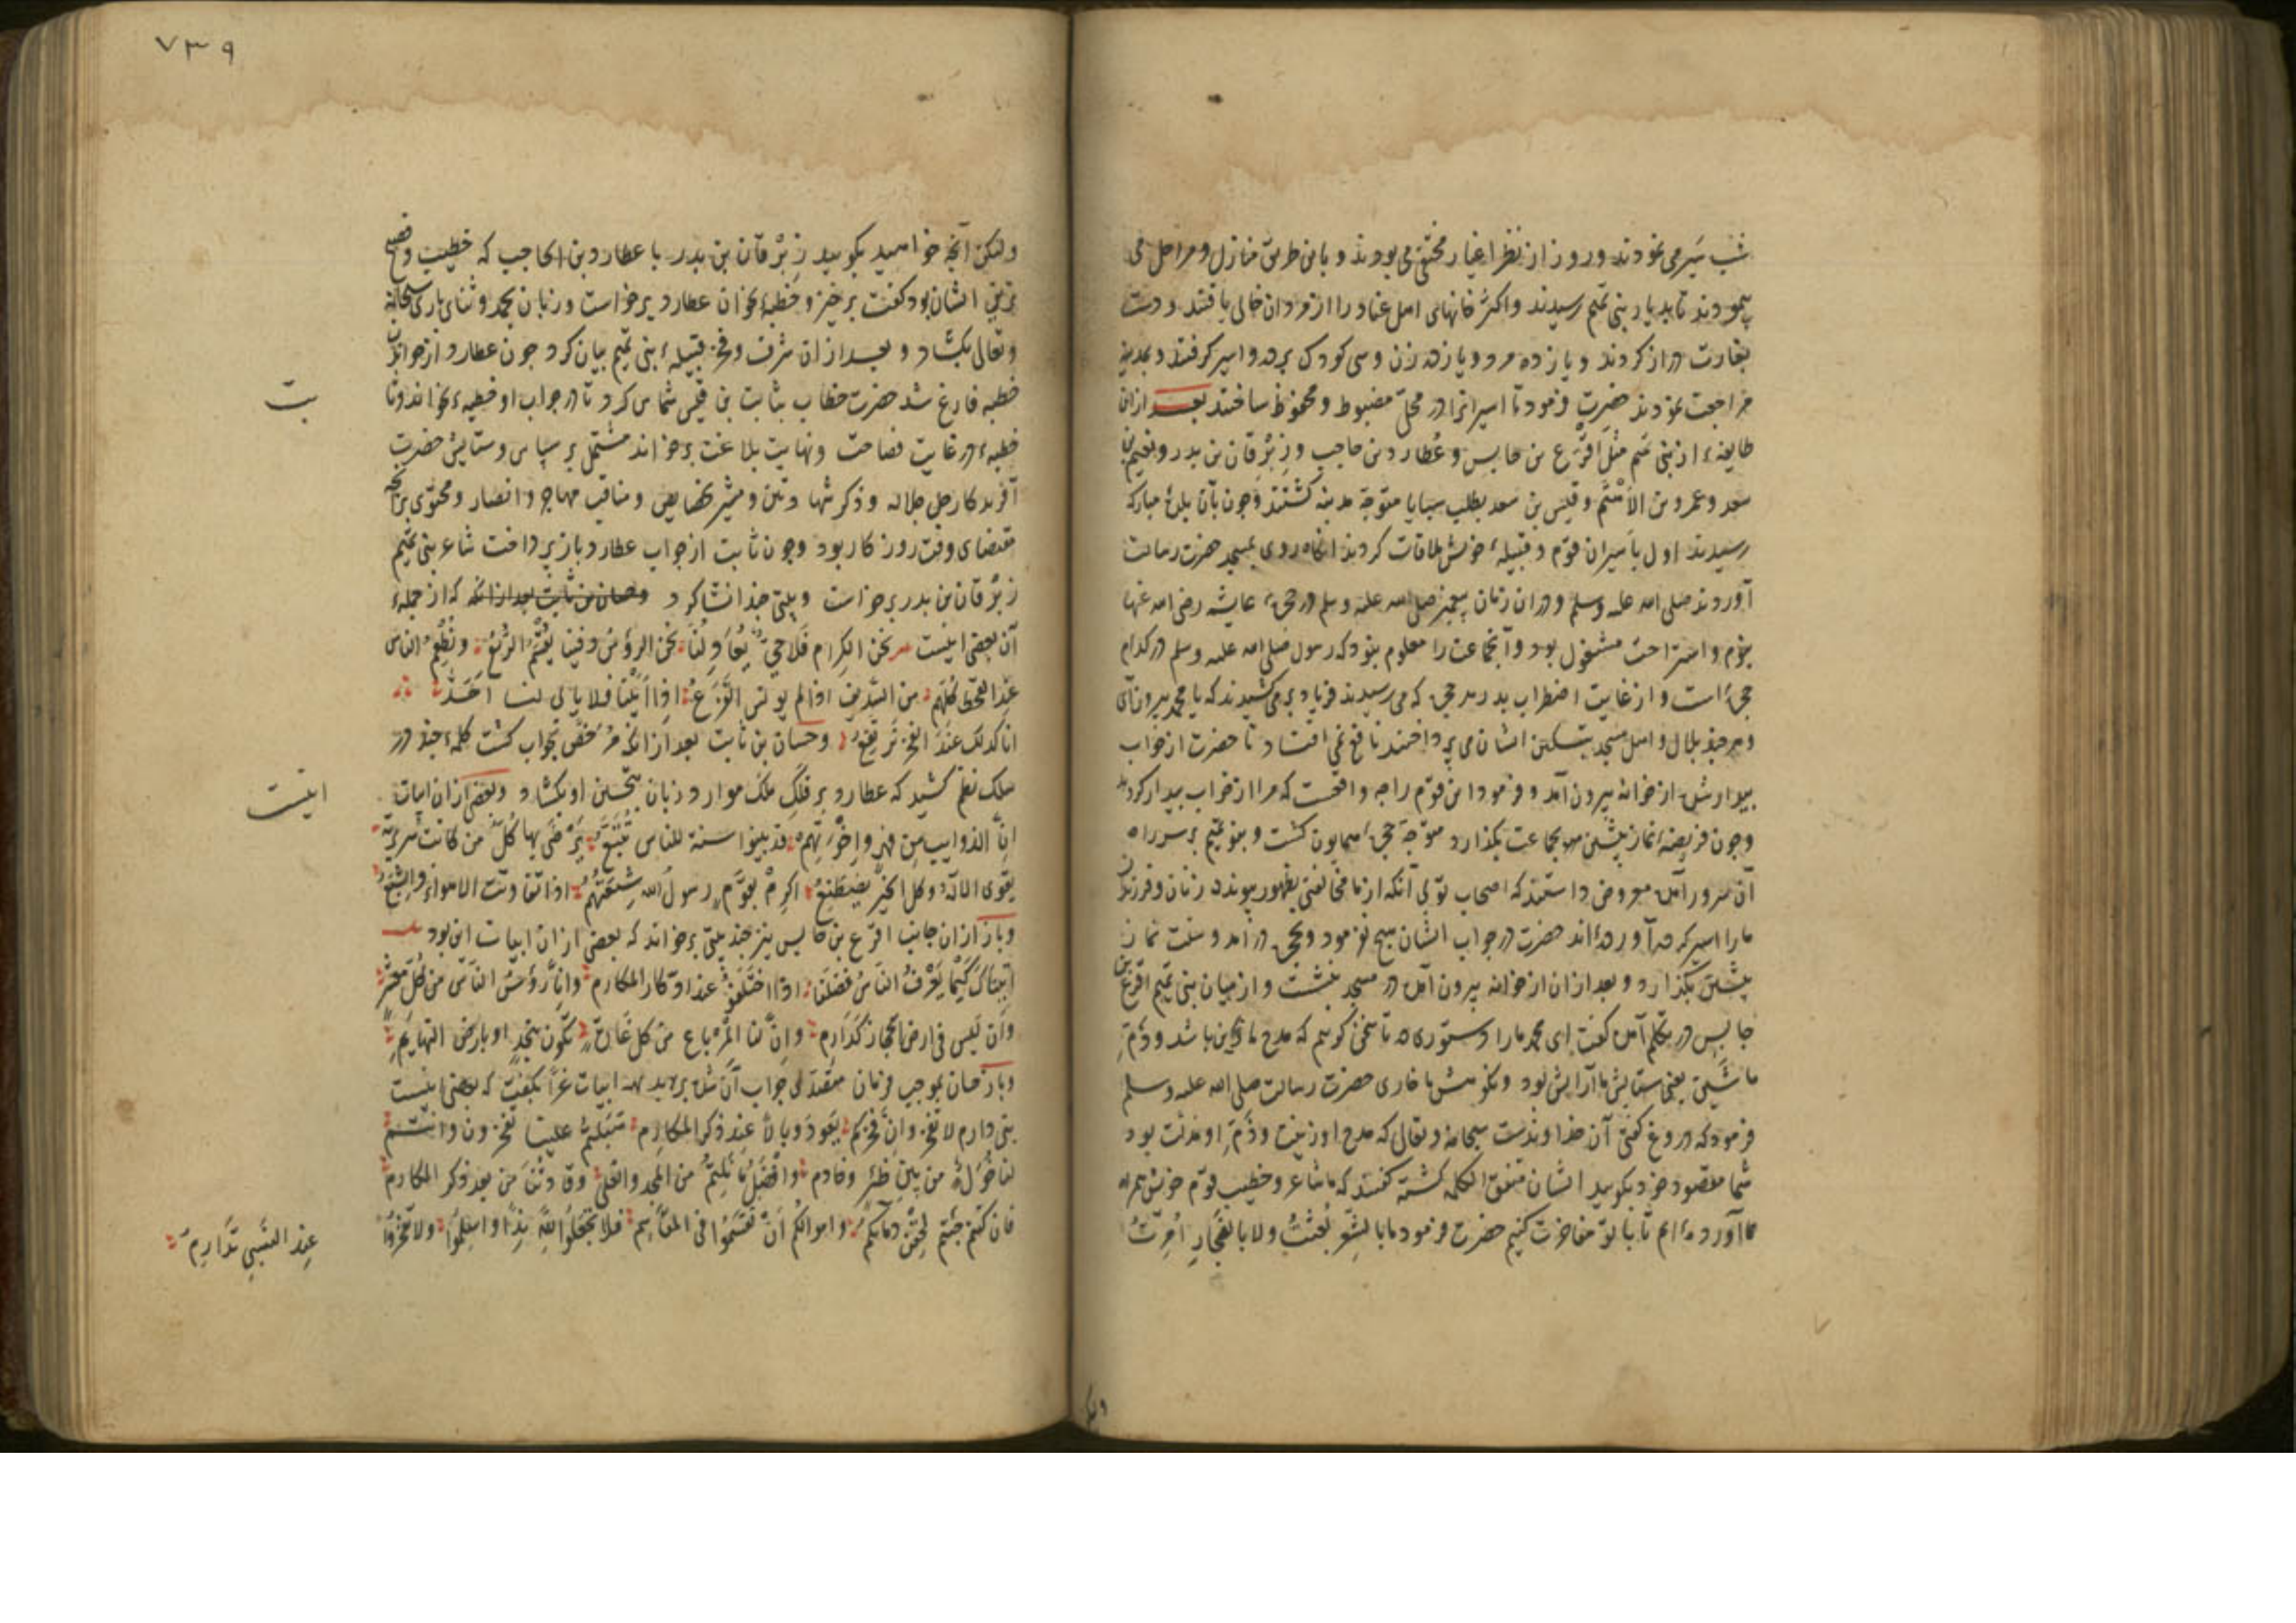 شب سیر می نمودند و روز از نظر اغیار مختفی می بودند و باین طریق منازل و مراحل می
پیمودند تا بدیار بنی تمیم رسیدند و اکثر خانهای اهل عناد را از مردان خالی یافتند و دست
بغارت دراز کردند و یازده مرد و یازده زن و سی کودک برده و اسیر گرفتند و بمدینه
مراجعت نمودند حضرت فرمود تا اسیرانرا در محلی مضبوط و محفوظ ساختند بعد ازان
طایفهٔ از بنی تمیم مثل اقرع بن حابس و عطارد بن حاجب و زبرقان بن بدر و نعیم بن
سعد و عمرو بن الاهتم و قیس بن سعد بطلب سبایا متوجه مدینه گشتند و چون بآن بلدهٔ مبارکه
رسیدند اول باسیران قوم و قبیلهٔ خویش ملاقات کردند انگاه روی بمسجد حضرت رسالت
آوردند صلی الله علیه وسلم و دران زمان پیغمبر صلی الله علیه وسلم در حجرهٔ عایشه رضی الله عنها
بنوم و استراحت مشغول بود و آنجماعت را معلوم نبود که رسول صلی الله علیه وسلم در کدام
حجره است و از غایت اضطراب بدر هر حجره که می رسیدند فریاد بر می کشیدند که یا محمد بیرون آی
و هر چند بلال و اهل مسجد بتسکین ایشان می پرداختند نافع نمی افتاد تا حضرت از خواب
بیدار شد از خوانه بیرون آمد و فرمود این قوم را چه واقعست که مرا از خواب بیدار کردند
و چون فریضهٔ نماز پیشین بجماعت بگذارد متوجه حجرهٔ همایون گشت و بنو تمیم بر سر راه
آن سرور آمده معروض داشتند که اصحاب تو بی آنکه از ما مخالفتی بظهور پیوندد زنان و فرزندان
مارا اسیر کرده آورده اند حضرت در جواب ایشان هیچ نفرمود و بحجره در آمد و سنت نماز
پیشین بگذارد و بعد ازان از خوانه بیرون آمده در مسجد بنشست و از میان بنی تمیم اقرع بن
حابس در تکلم آمده گفت ای محمد مارا دستوری ده تا سخن گوییم که مدح ما زین باشد و ذم
ما شین یعنی ستایش ما آرایش بود و نکوهش ما خاری حضرت رسالت صلی الله علیه وسلم
فرمود که دروغ گفتی آن خداوندست سبحانه و تعالی که مدح او زینت و ذم او مذلت بود
شما مقصود خود بگویید ایشان متفق الکلمه گشته گفتند که ما شاعر و خطیب قوم خویش همراه
آورده ایم تا با تو مفاخرت کنیم حضرت فرمود ما بالشعر بعثت ولا بالفخار امرت
ولیکن
۷۳۹
ولیکن آنچه خواهید بگویید زبرقان بن بدر با عطارد بن الحاجب که خطیب و فصیح
ترین ایشان بود گفت برخیز و خطبهٔ بخوان عطارد برخواست و زبان بحمد و ثنای باری سبحانه
و تعالی بگشاد و بعد ازان شرف و فخر قبیلهٔ بنی تمیم بیان کرد چون عطارد از خواندن
خطبه فارغ شد حضرت خطاب بثابت بن قیس شماس کرد تا در جواب او خطبهٔ بخواند و ثا
بت
خطبهٔ در غایت فصاحت و نهایت بلاغت برخواند مشتمل بر سپاس و ستایش حضرت
آفریدکار جل جلاله و ذکر شهادتین و مشیر بخصایص و مناقب مهاجر و انصار و محتوی بر آنچه
مقتضای وقت روزکار بود و چون ثابت از جواب عطارد باز پرداخت شاعر بنی تمیم
زبرقان بن بدر برخواست و بیتی چند انشا کرد وحسان بن ثابت بعد ازانکه که از جملهٔ
آن بعضی اینست نحن الکرام فلا حی یعادلنا نحن الرؤس وفینا یقسم الربع ونطعم الناس
عند القحط کلهم من السدیف اذا لم یونس القزع اذا ابینا فلا یابی لنا احد
انا کذلک عند الفخر نرتفع و حسان بن ثابت بعد ازانکه مرخص بجواب گشت کلمهٔ چند در
سلک نظم کشید که عطارد بر فلک ملک موار و زبان بتحسین او بگشاد و بعضی ازان ابیات
اینست
ان الذوایب من فهر واخوتهم قد بینوا سنة للناس تتبع یرضی بها کل من کانت سریرته
تقوی الاله وکل الخیر یصطنع اکرم بقوم رسول الله شیعتهم اذا تفاوتت الاهواء والشیع
و باز ازان جانب اقرع بن حابس نیز چند بیتی برخواند که بعضی ازان ابیات این بود
اتیناک کیما یعرف الناس فضلنا اذا اختلفوا عند ادکار المکارم وانا رؤس الناس من کل معشر
وان لیس فی ارض الحجاز کدارم وان لنا المرباع من کل غارة تکون بنجد او بارض التهایم
و باز حسان بموجب فرمان متصدی جواب آن شده بر بدیهه ابیات غرا بگفت که بعضی اینست
بنی دارم لا تفخروا ان فخرکم یعود وبالا عند ذکر المکارم هبلتم علینا تفخرون وانتم
لنا خول من بین ظئر وخادم وافضل ما نلتم من المجد والعلی وفادتنا من بعد ذکر المکارم
فان کنتم جئتم لحقن دمائکم واموالکم ان تقسموا فی المقاسم فلا تجعلوا لله ندا واسلموا ولا تفخروا
عند النبی بدارم